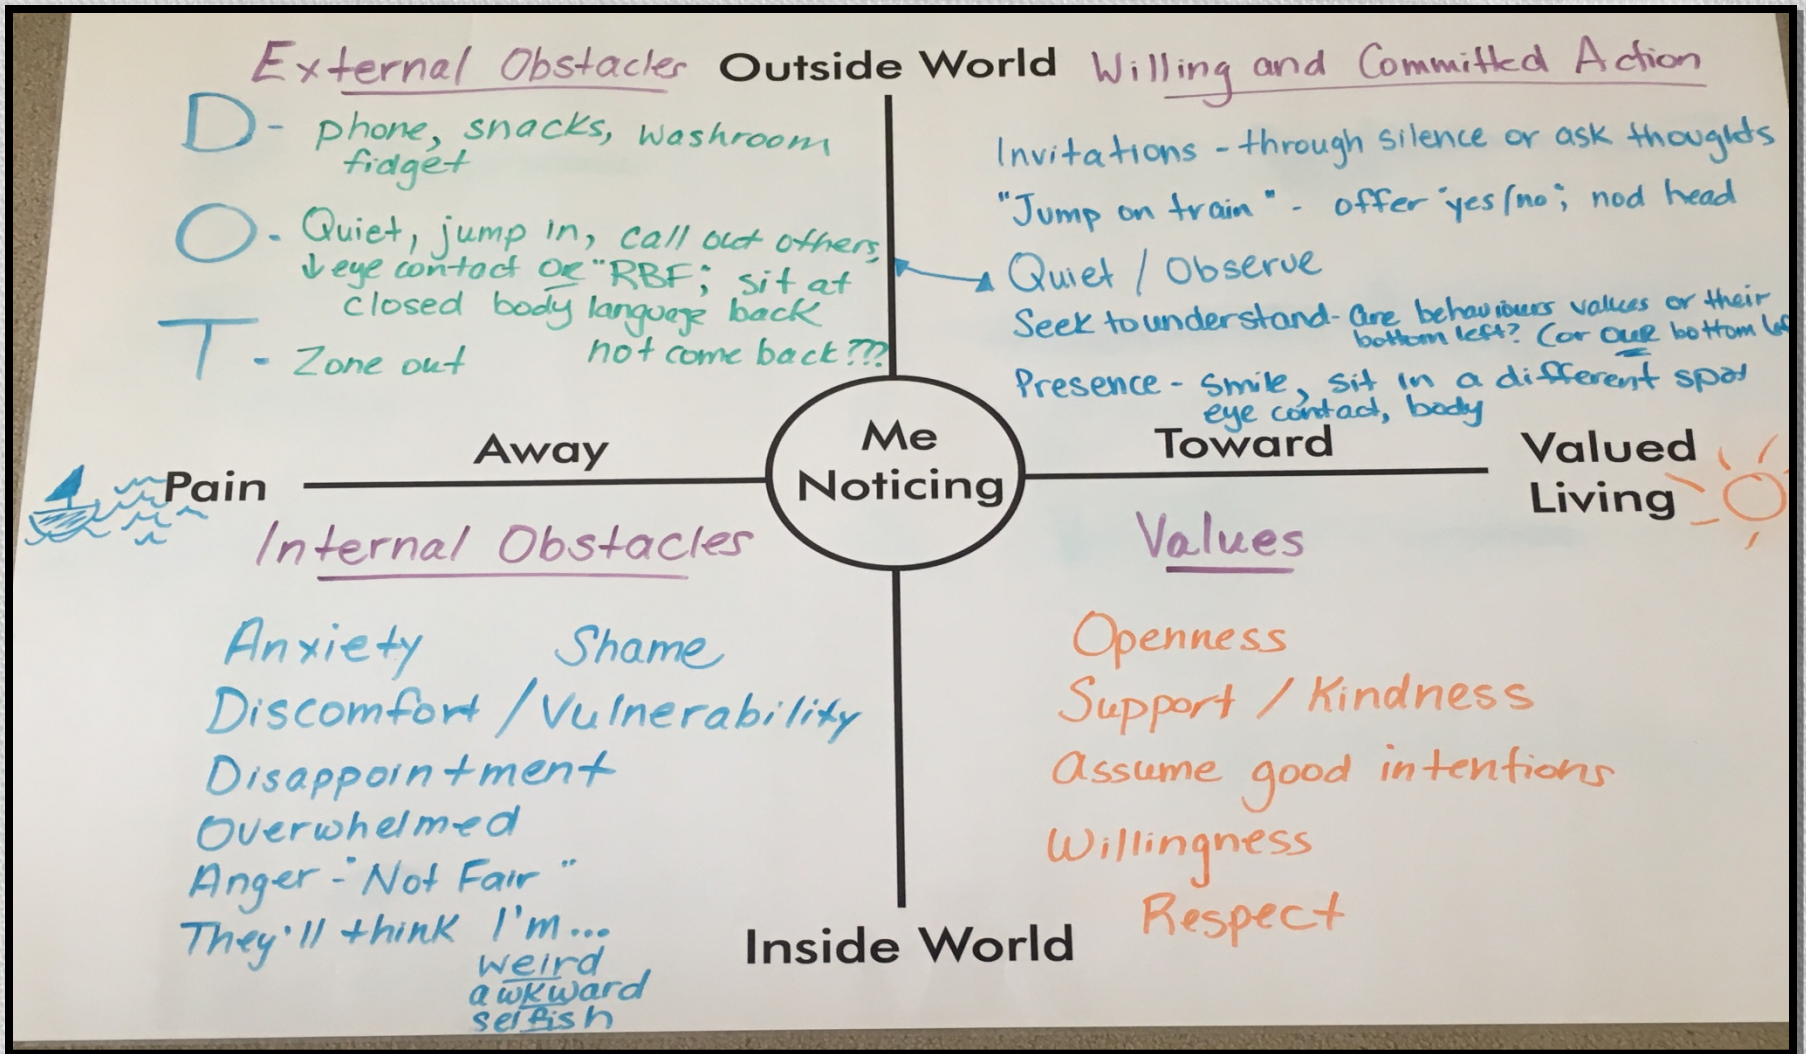 External Obstacles
Outside World
Willing and Committed Action
D - phone, snacks, washroom
fidget
O - Quiet, jump in, call out others,
↓ eye contact or "RBF; sit at
closed body language back
T - Zone out
not come back???
Invitations - through silence or ask thoughts
"Jump on train" - offer yes/no; nod head
Quiet / Observe
Seek to understand - are behaviours values or their
bottom left? (or our bottom
Presence - smile, sit in a different spot
eye contact, body
Pain
Away
Me
Noticing
Toward
Valued
Living
Internal Obstacles
Anxiety Shame
Discomfort / Vulnerability
Disappointment
Overwhelmed
Anger - "Not Fair"
They'll think I'm...
weird
awkward
selfish
Values
Openness
Support / Kindness
assume good intentions
Willingness
Respect
Inside World